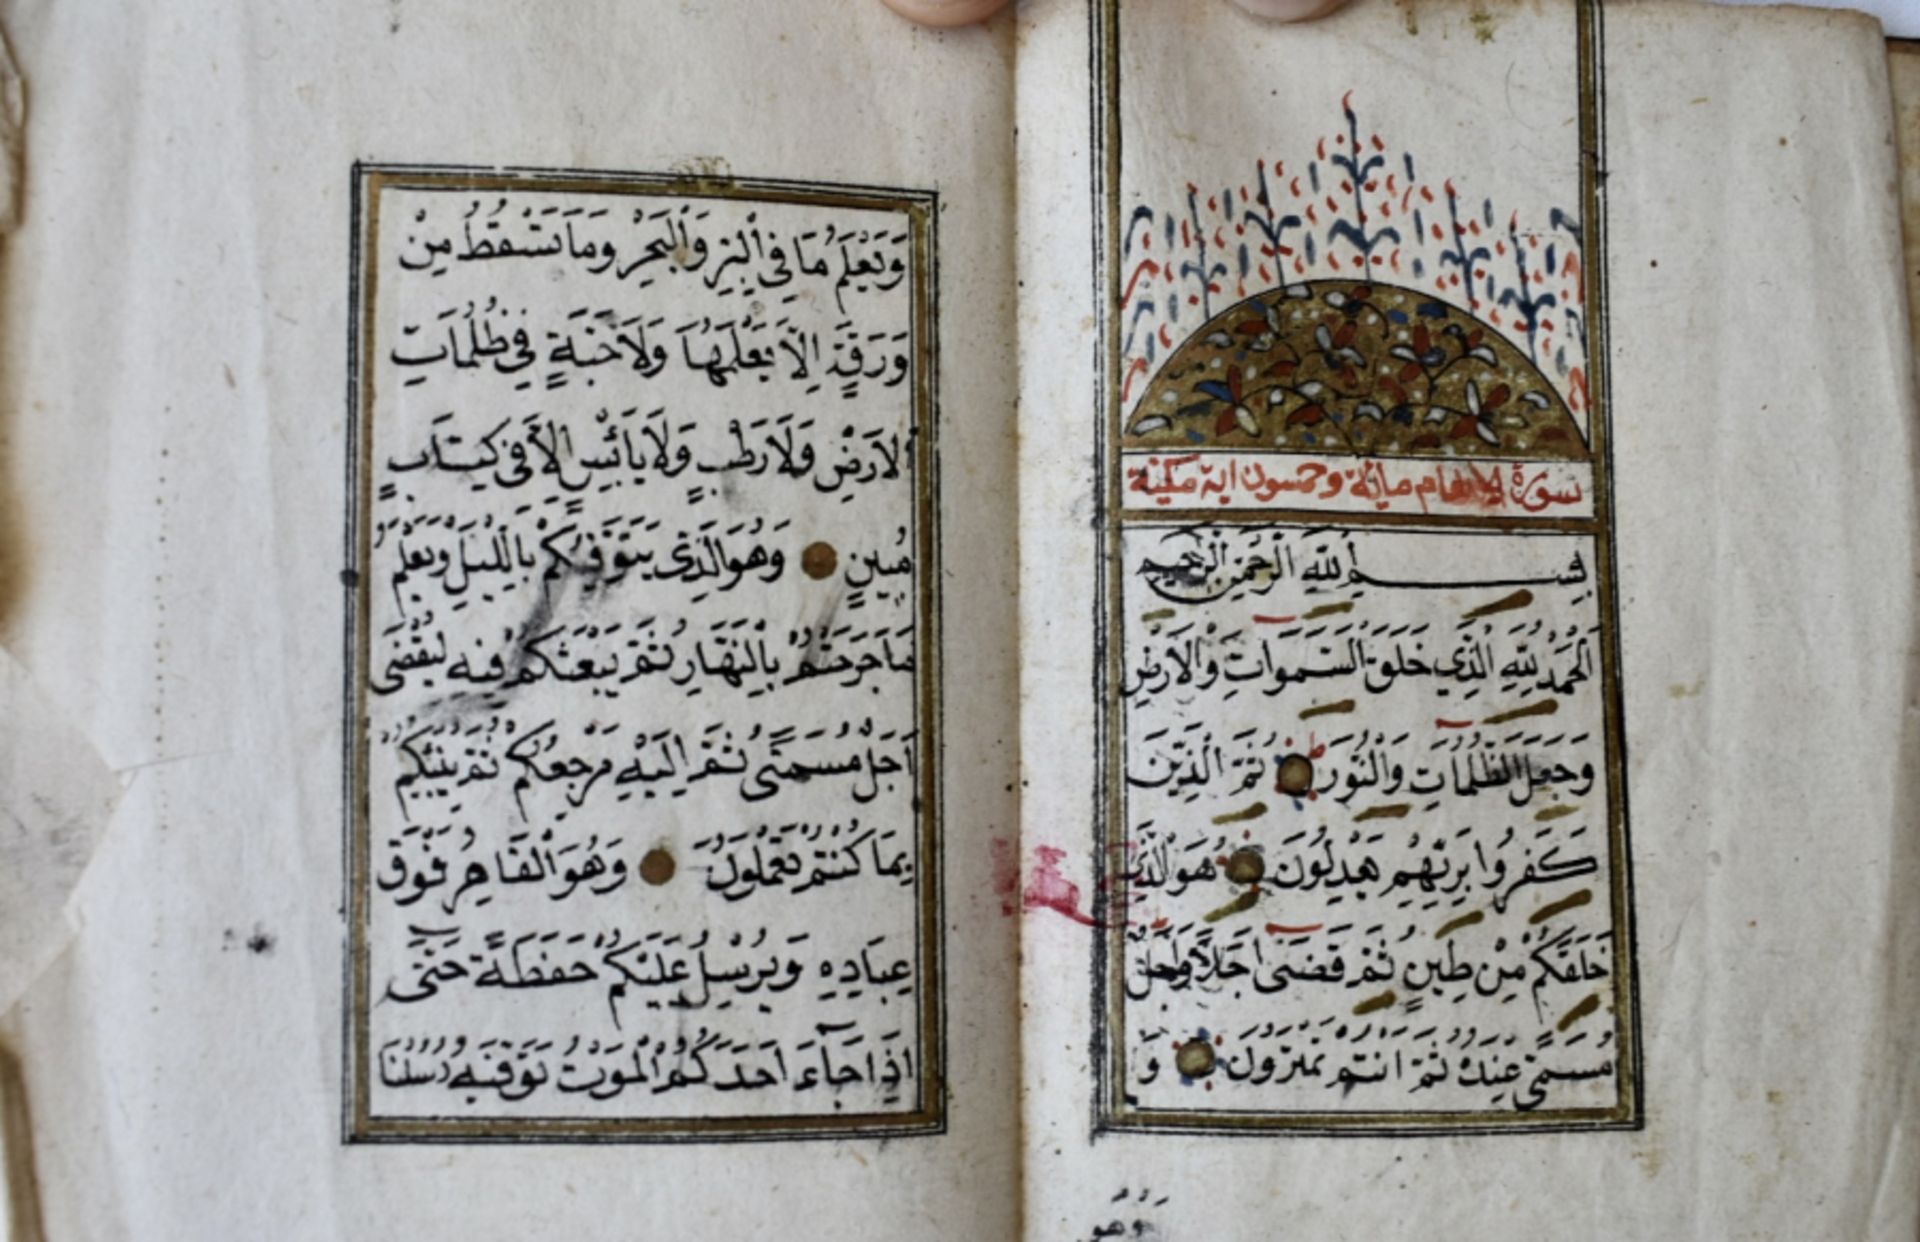 سورة الانعام مائة وخمسون اية مكية
بسم الله الرحمن الرحيم
اَلْحَمْدُ لِلّٰهِ الَّذِي خَلَقَ السَّمَوَاتِ وَالْاَرْضَ
وَجَعَلَ الظُّلُمَاتِ وَالنُّورَ ثُمَّ الَّذِينَ
كَفَرُوا بِرَبِّهِمْ يَعْدِلُونَ هُوَ الَّذِي
خَلَقَكُمْ مِنْ طِينٍ ثُمَّ قَضَى اَجَلًا وَاَجَلٌ
مُسَمًّى عِنْدَهُ ثُمَّ اَنْتُمْ تَمْتَرُونَ وَ
وَهُوَ
وَيَعْلَمُ مَا فِي الْبَرِّ وَالْبَحْرِ وَمَا تَسْقُطُ مِنْ
وَرَقَةٍ اِلَّا يَعْلَمُهَا وَلَا حَبَّةٍ فِي ظُلُمَاتِ
الْاَرْضِ وَلَا رَطْبٍ وَلَا يَابِسٍ اِلَّا فِي كِتَابٍ
مُبِينٍ وَهُوَ الَّذِي يَتَوَفَّيكُمْ بِاللَّيْلِ وَيَعْلَمُ
مَا جَرَحْتُمْ بِالنَّهَارِ ثُمَّ يَبْعَثُكُمْ فِيهِ لِيُقْضَى
اَجَلٌ مُسَمًّى ثُمَّ اِلَيْهِ مَرْجِعُكُمْ ثُمَّ يُنَبِّئُكُمْ
بِمَا كُنْتُمْ تَعْمَلُونَ وَهُوَ الْقَاهِرُ فَوْقَ
عِبَادِهِ وَيُرْسِلُ عَلَيْكُمْ حَفَظَةً حَتَّى
اِذَا جَاءَ اَحَدَكُمُ الْمَوْتُ تَوَفَّتْهُ رُسُلُنَا